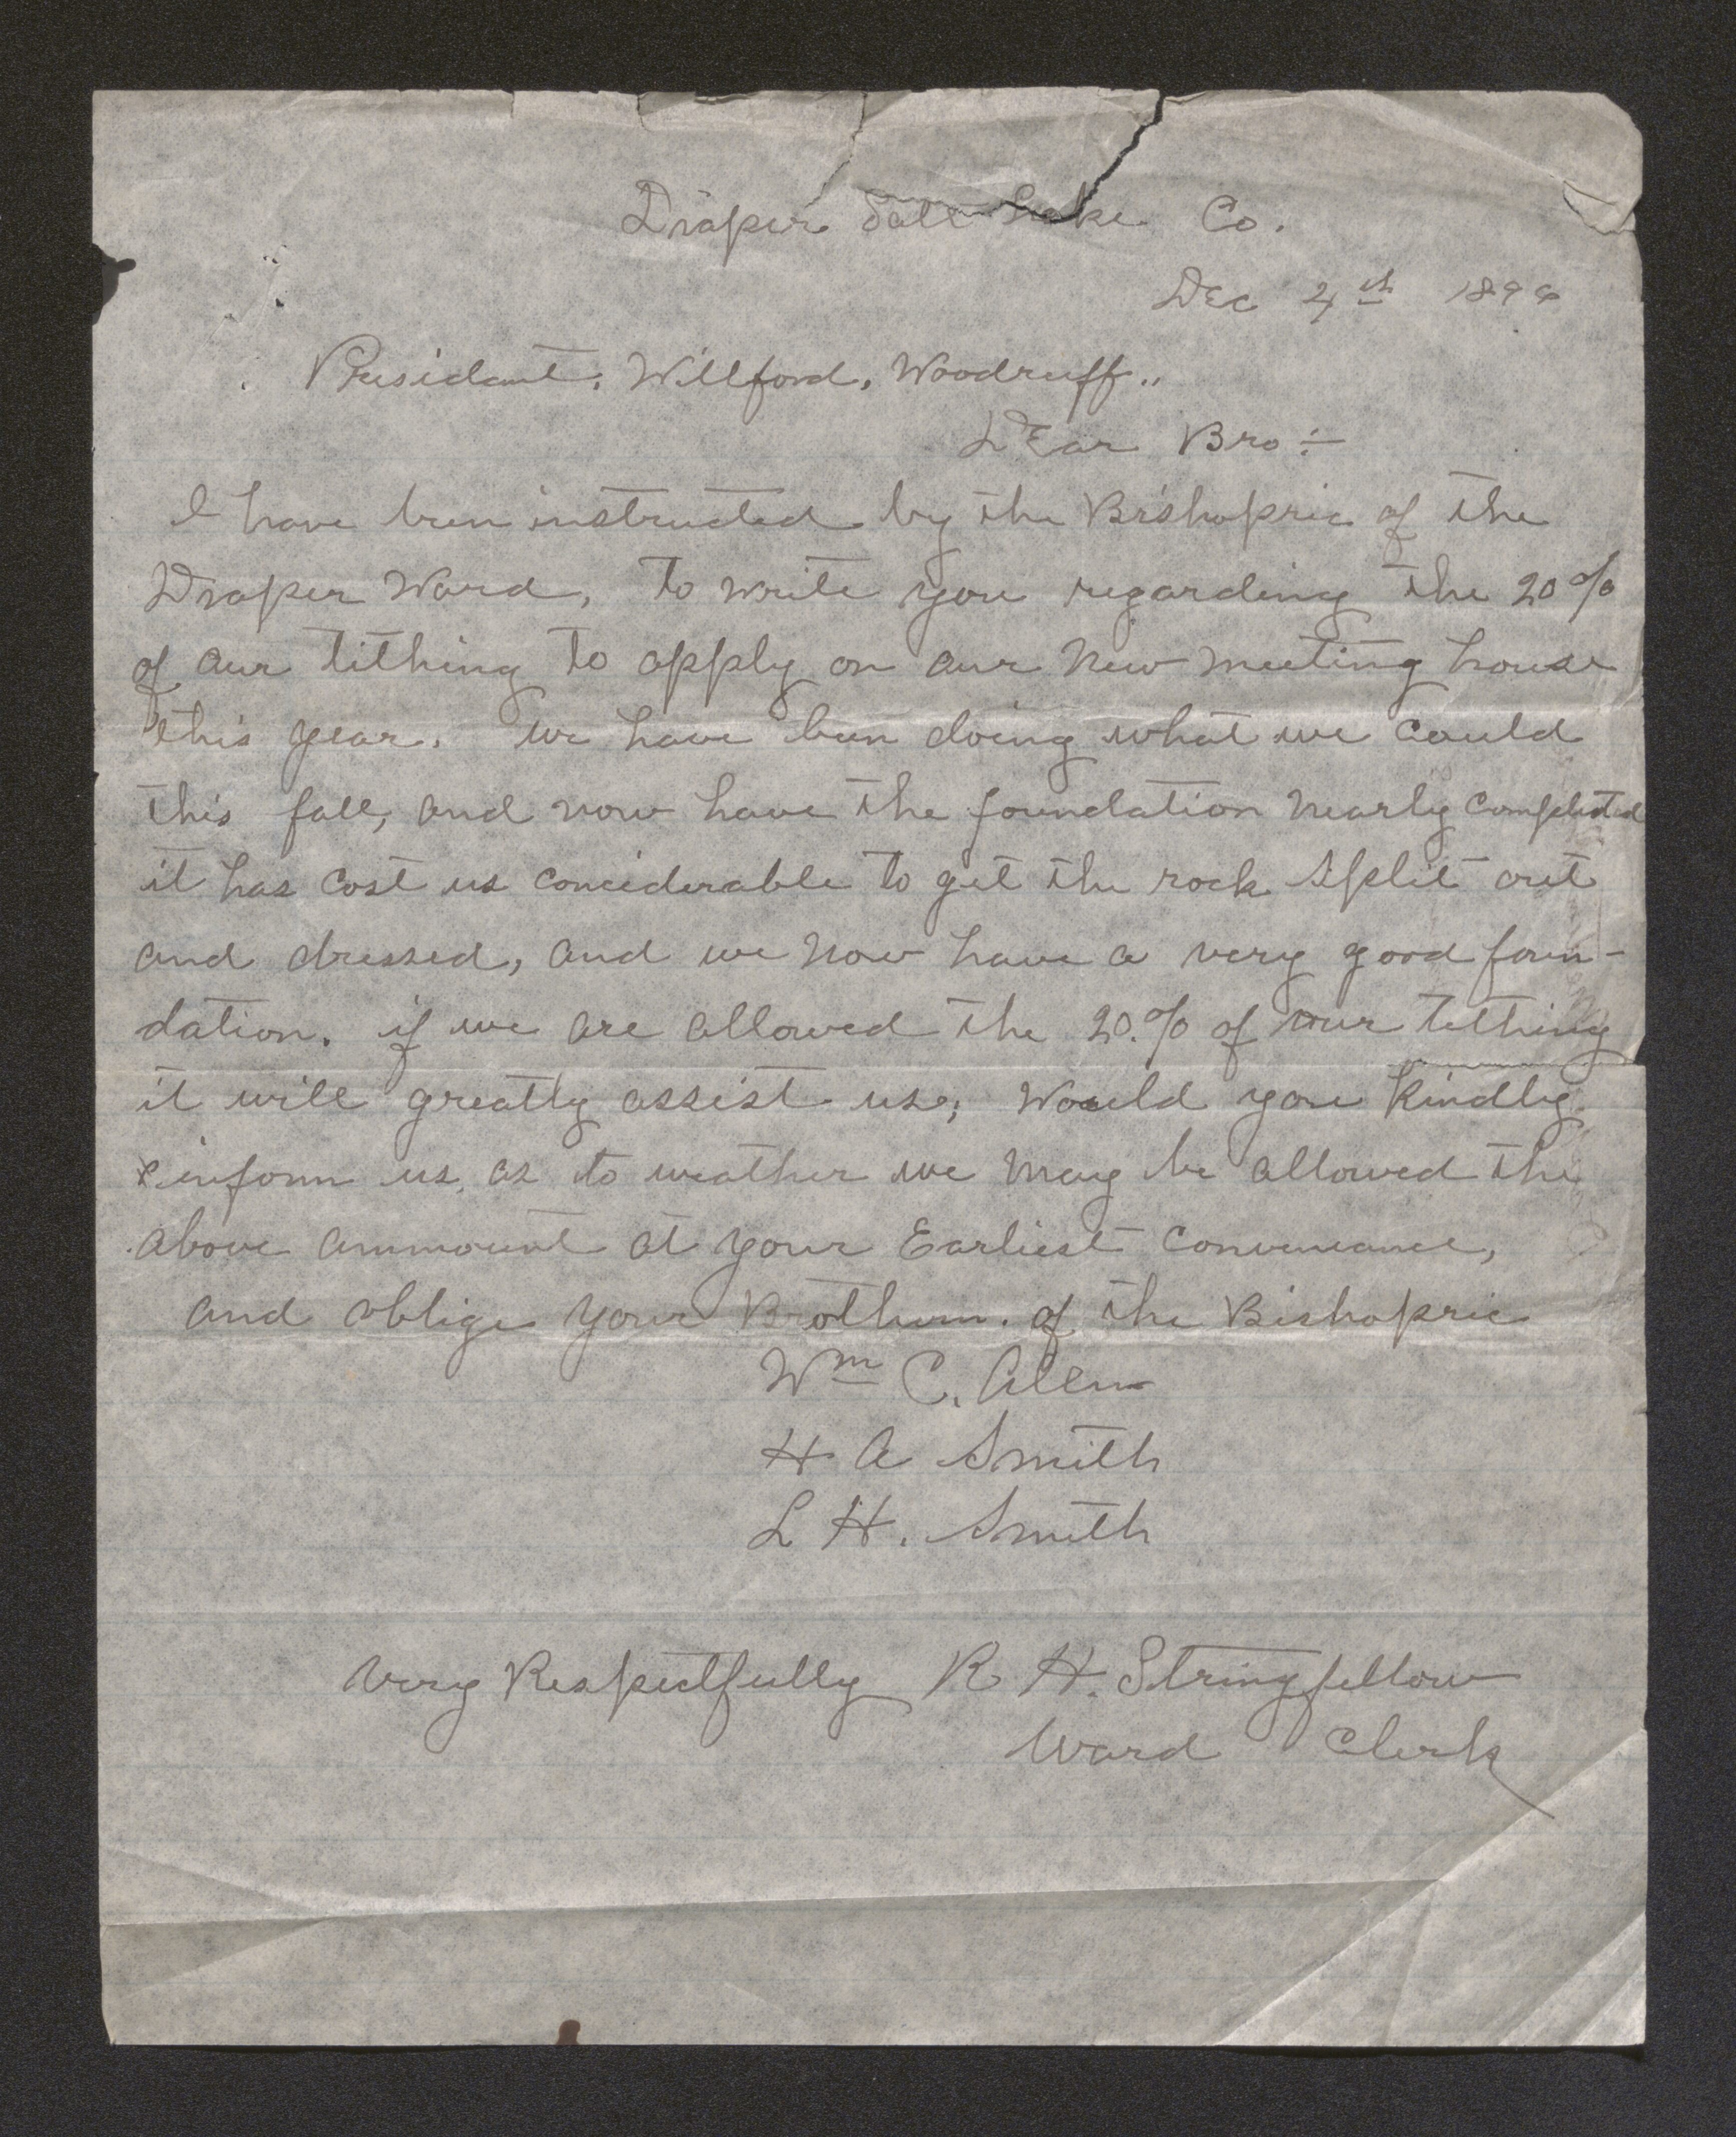 Draper Salt Lake Co.
Dec 4th 189
President, Willford, Woodruff,,
Dear Bro:—
I have been instructed by the Bishopric of the
Draper Ward, to write you regarding the 20%
of our tithing to apply on our New meeting house
this year. we have been doing what we could
this fall, and now have the foundation nearly completed
it has cost us conciderable to get the rock split out
and dressed, and we now have a very good foun-
dation. if we are allowed the 20.% of our tithing
it will greatly assist us; Would you kindly
inform us, as to weather we may be allowed the
above ammount at your Earliest convenience,
and oblige your Brethern. of the Bishopric
Wm C. Allen
H A Smith
L H. Smith
Very Respectfully R H. Stringfellow
Ward Clerk